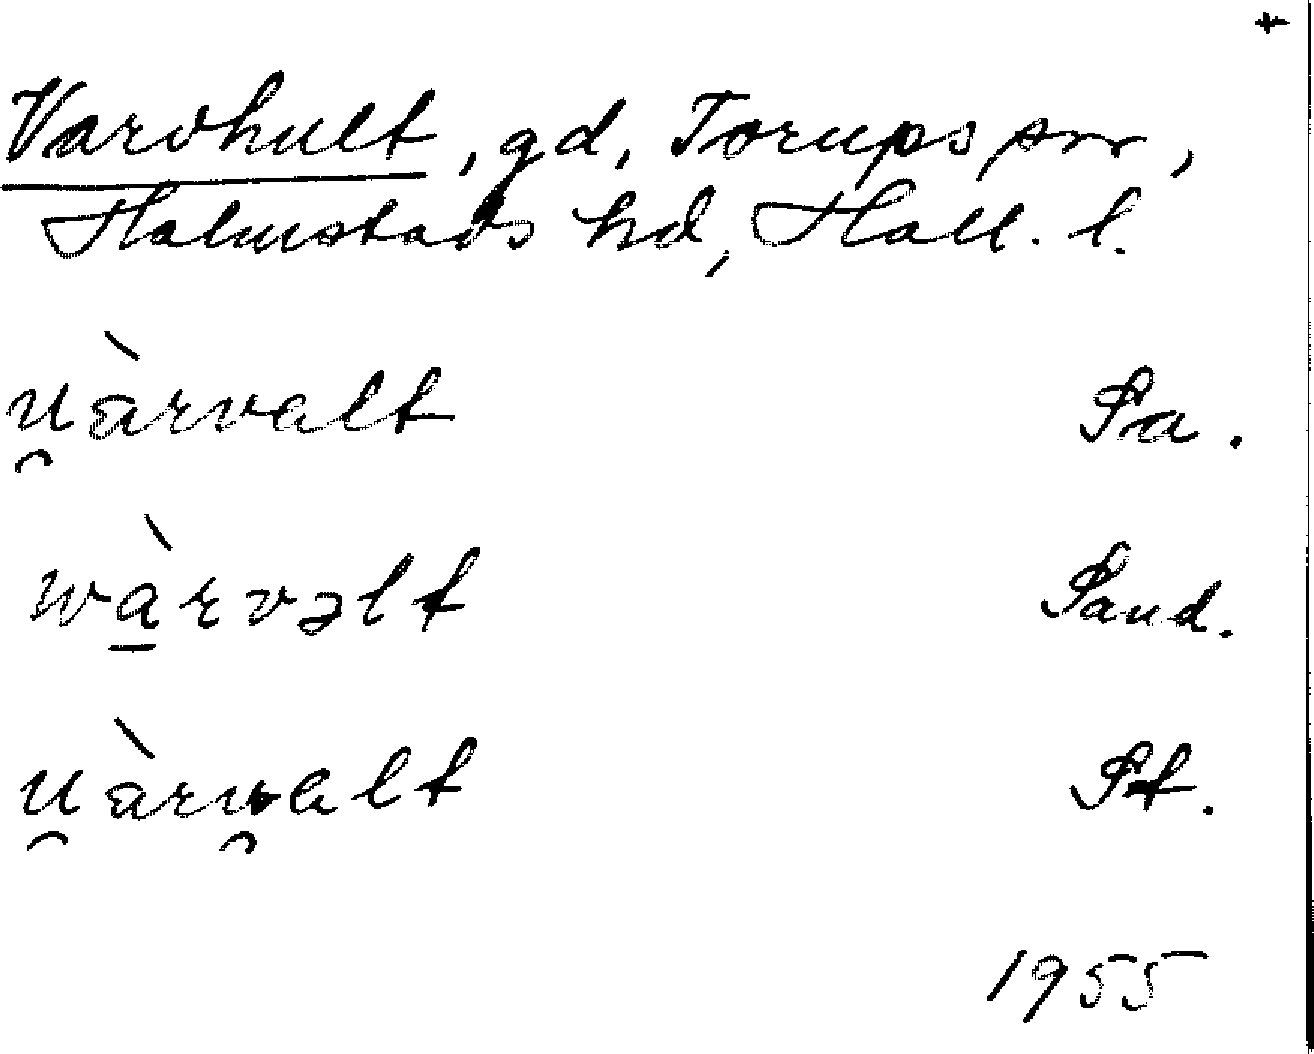 +
Varvhult, gd, Torups snr,
Halmstads hd, Hall. l.
u̯àrvalt Sa.
wàrvəlt Sand.
u̯àru̯alt St.
1955